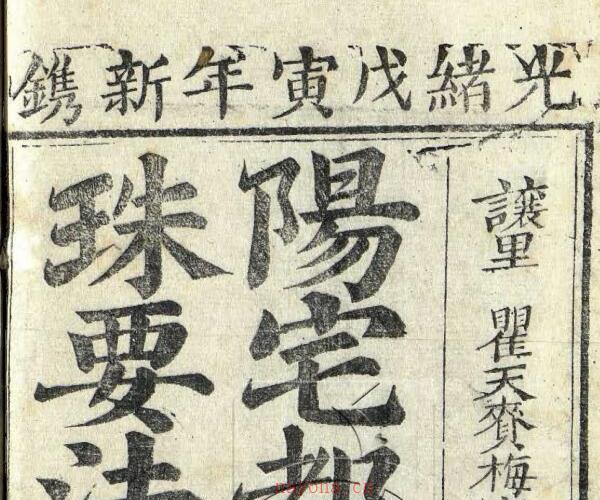 光緒戊寅年新鐫
讓里 瞿天賚梅
陽宅都
珠要法
nayona.cn